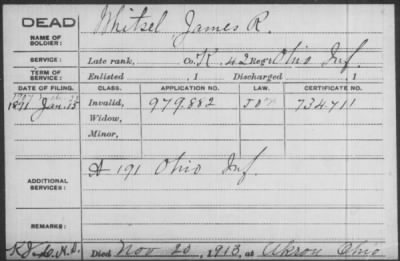 DEAD
NAME OF SOLDIER: Whitsel James R.
SERVICE: Late rank, Co. K, 42 Reg't Ohio Inf.
TERM OF SERVICE: Enlisted , 1 Discharged , 1
DATE OF FILING. CLASS. APPLICATION NO. LAW. CERTIFICATE NO.
1891 Jan. 15 Invalid, 979.882 734711
Widow,
Minor,
ADDITIONAL SERVICES: A 191 Ohio Inf.
REMARKS:
Died Nov 20, 1913, at Akron Ohio